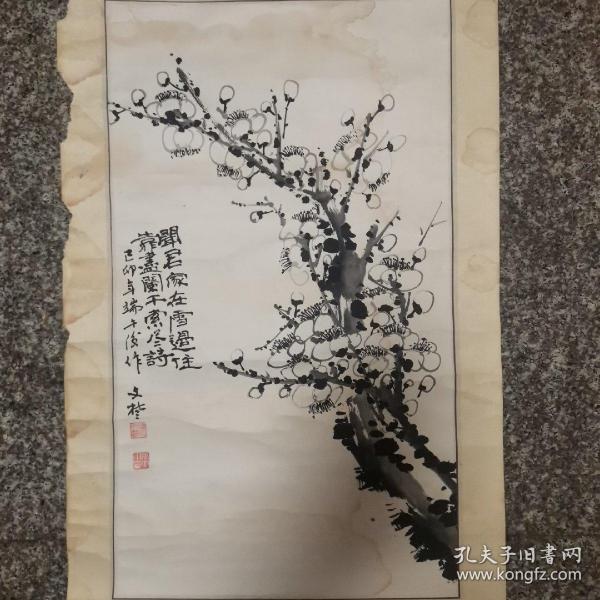 聞君家在雪邊住
靠盡闌干索尽詩
己卯年端午後作
文
孔夫子旧书网
www.kongfz.com